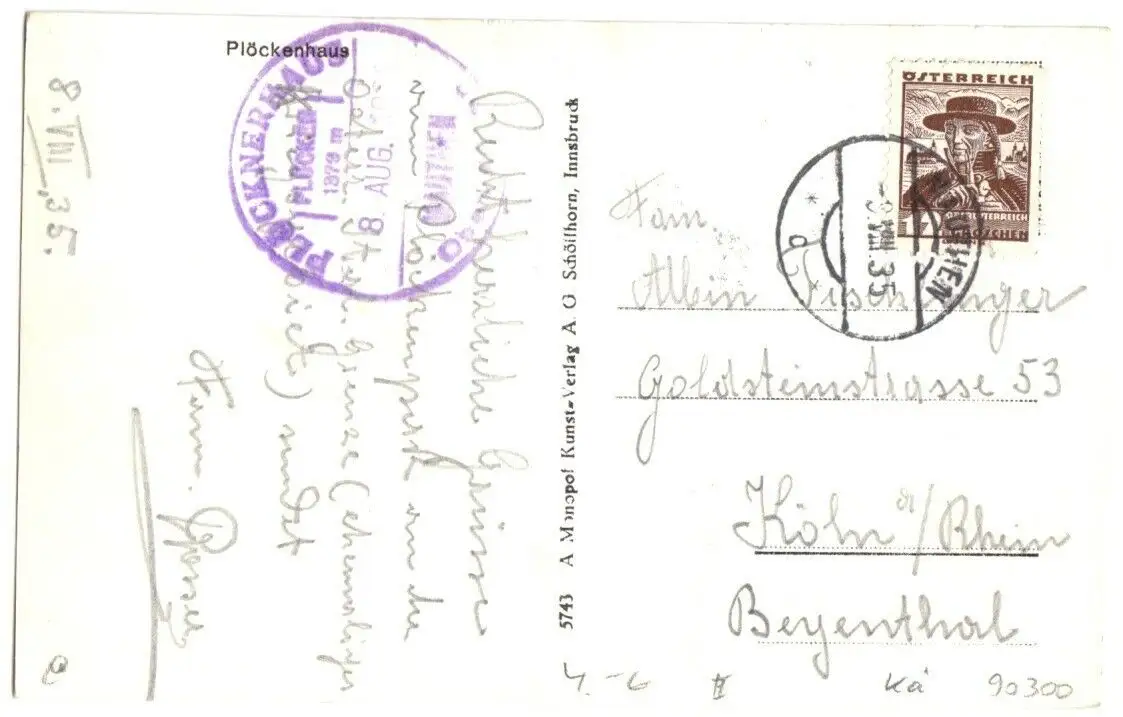 Plöckenhaus
PLÖCKNERHAUS
PLÖCKEN
1379 m
8 AUG.
MAUTHEN
8.VIII.35.
Recht herzliche Grüsse
vom Plöckenpass an der
Österr. Ital. Grenze (ehemaliges
Kriegsgebiet) sendet
Fam.
5743 A Monopol Kunst-Verlag A. G Schöllhorn, Innsbruck
ÖSTERREICH
OBERÖSTERREICH
GROSCHEN
MAUTHEN
-9.VIII.35
Fam.
Albin Teschlinger
Goldsteinstrasse 53
Köln a/Rhein
Beyenthal
4.-6
II
Ká 90300